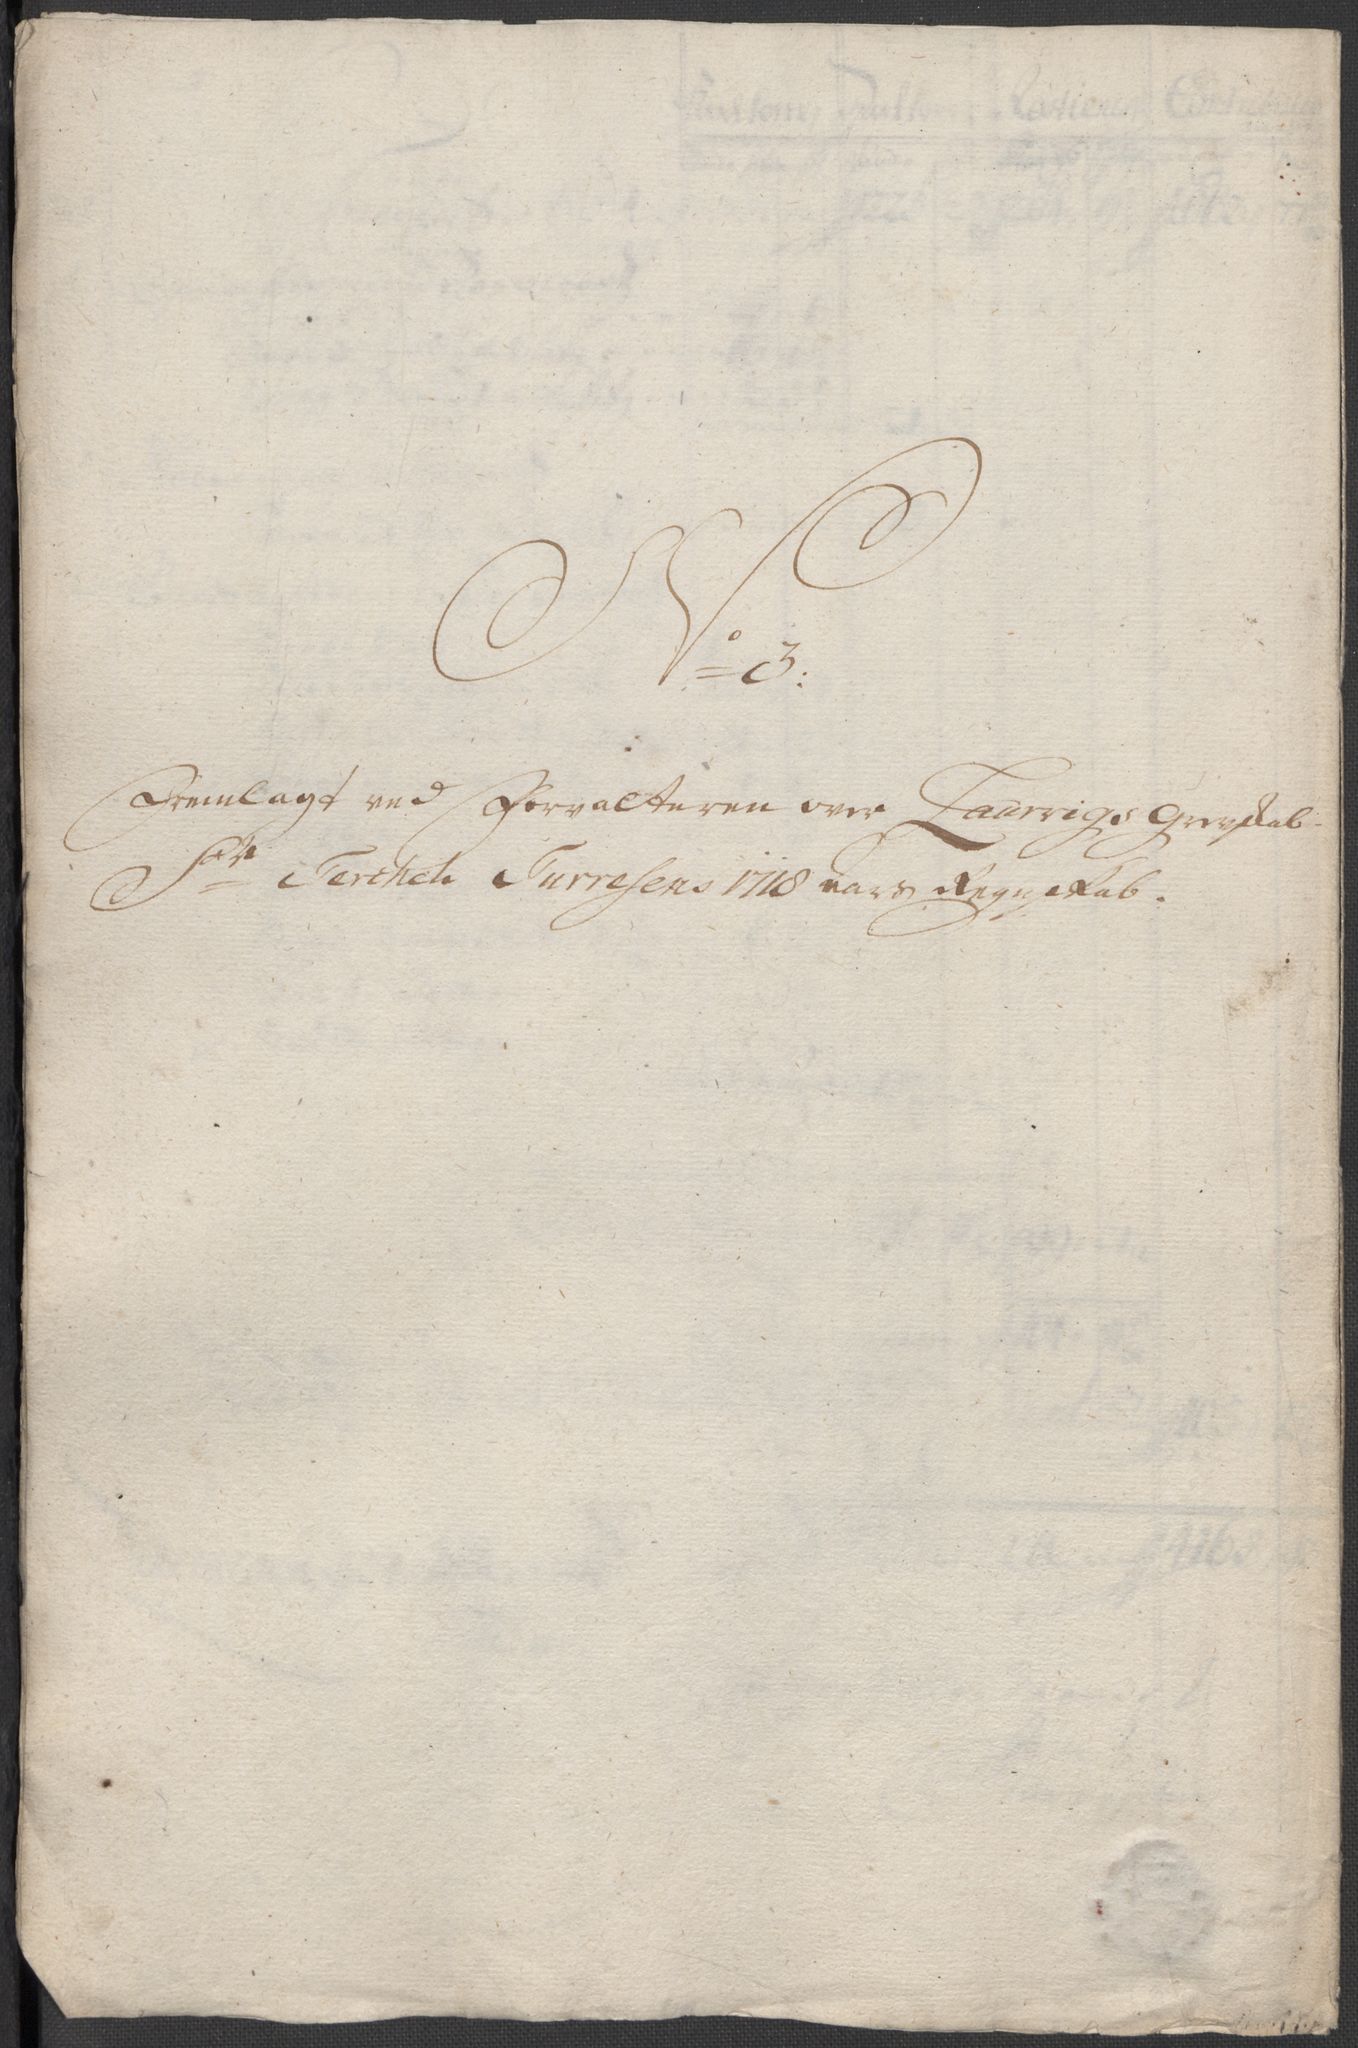 No 3:
Fremlagt ved Forvalteren over Laurvigs Grevskab
Sr Terchel Turresens 1718 aars Regnskab.